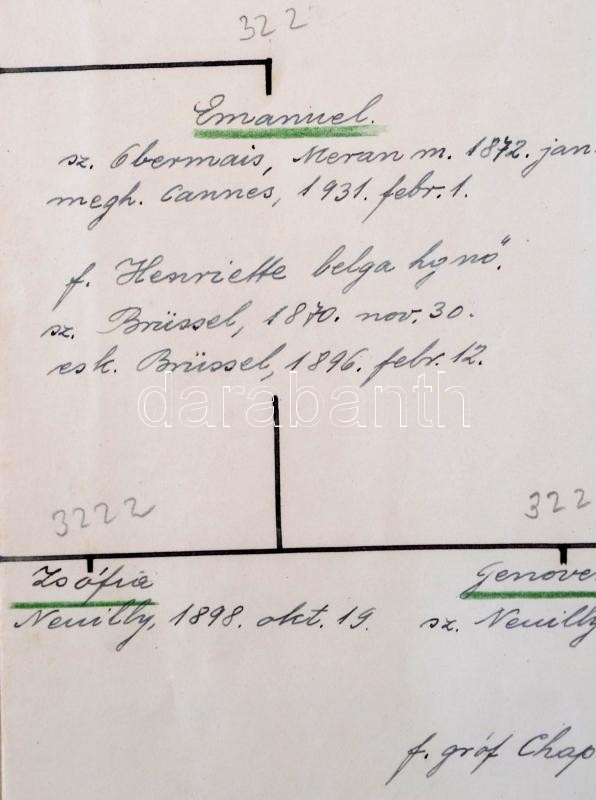 322
Emanuel.
sz. Obermais, Meran m. 1872. jan.
megh. Cannes, 1931. febr. 1.
f. Henriette belga hgnő.
sz. Brüssel, 1870. nov. 30.
esk. Brüssel, 1896. febr. 12.
darabanth
3222 322
Zsófia Genove
Neuilly, 1898. okt. 19. sz. Neuilly
f. gróf Chap